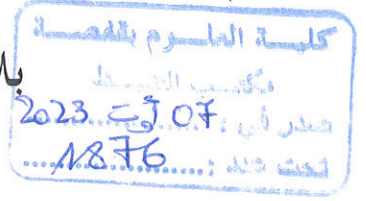 كلية العلوم بقفصة
مكتب الضبط
صدر في : 07 أوت 2023
تحت عدد : 1876